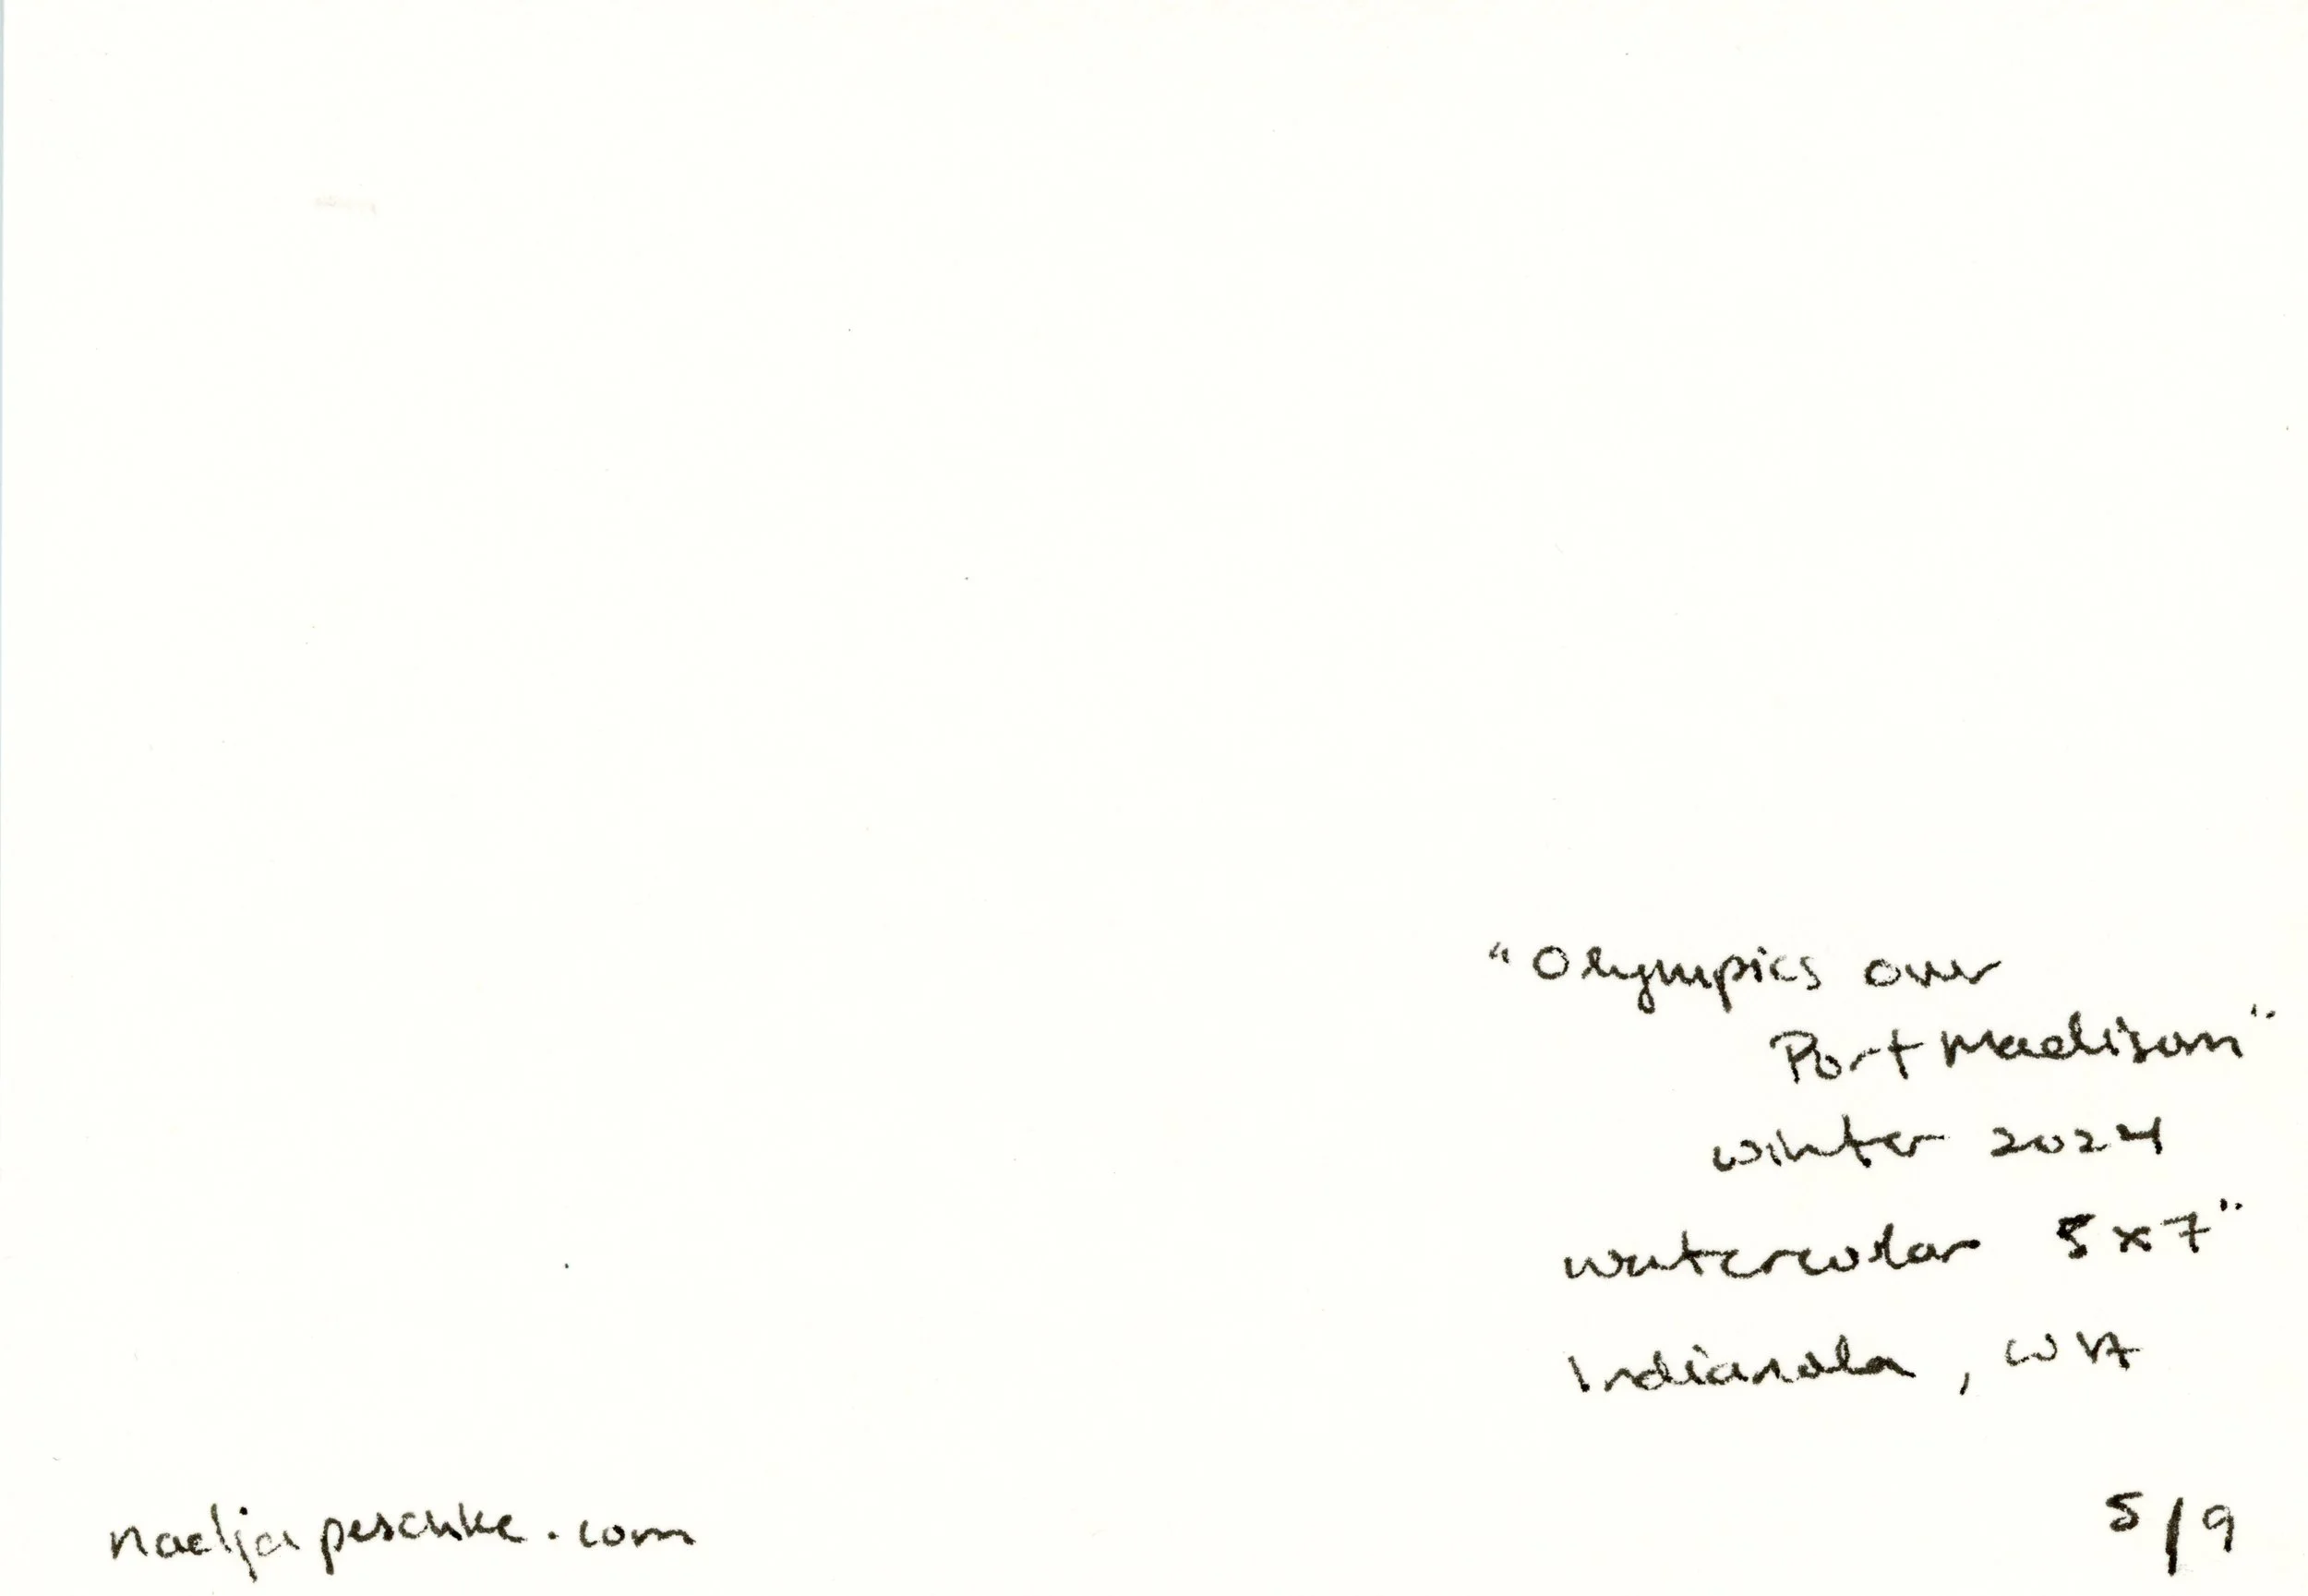 "Olympics over
Port Madison"
winter 2024
watercolor 5x7"
Indianola, WA
nadjapeschke.com
5/9